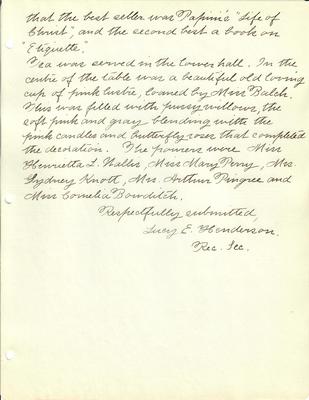 that the best seller was Papini's "Life of
Christ", and the second best a book on
"Etiquette."
Tea was served in the lower hall. In the
centre of the table was a beautiful old loving
cup of pink lustre, loaned by Miss Balch.
This was filled with pussy willows, the
soft pink and gray blending with the
pink candles and butterfly roses that completed
the decoration. The pourers were Miss
Henrietta L. Wallis, Miss Mary Perry, Mrs.
Sydney Knott, Mrs. Arthur Pingree and
Miss Cornelia Bowditch.
Respectfully submitted,
Lucy E. Henderson.
Rec. Sec.